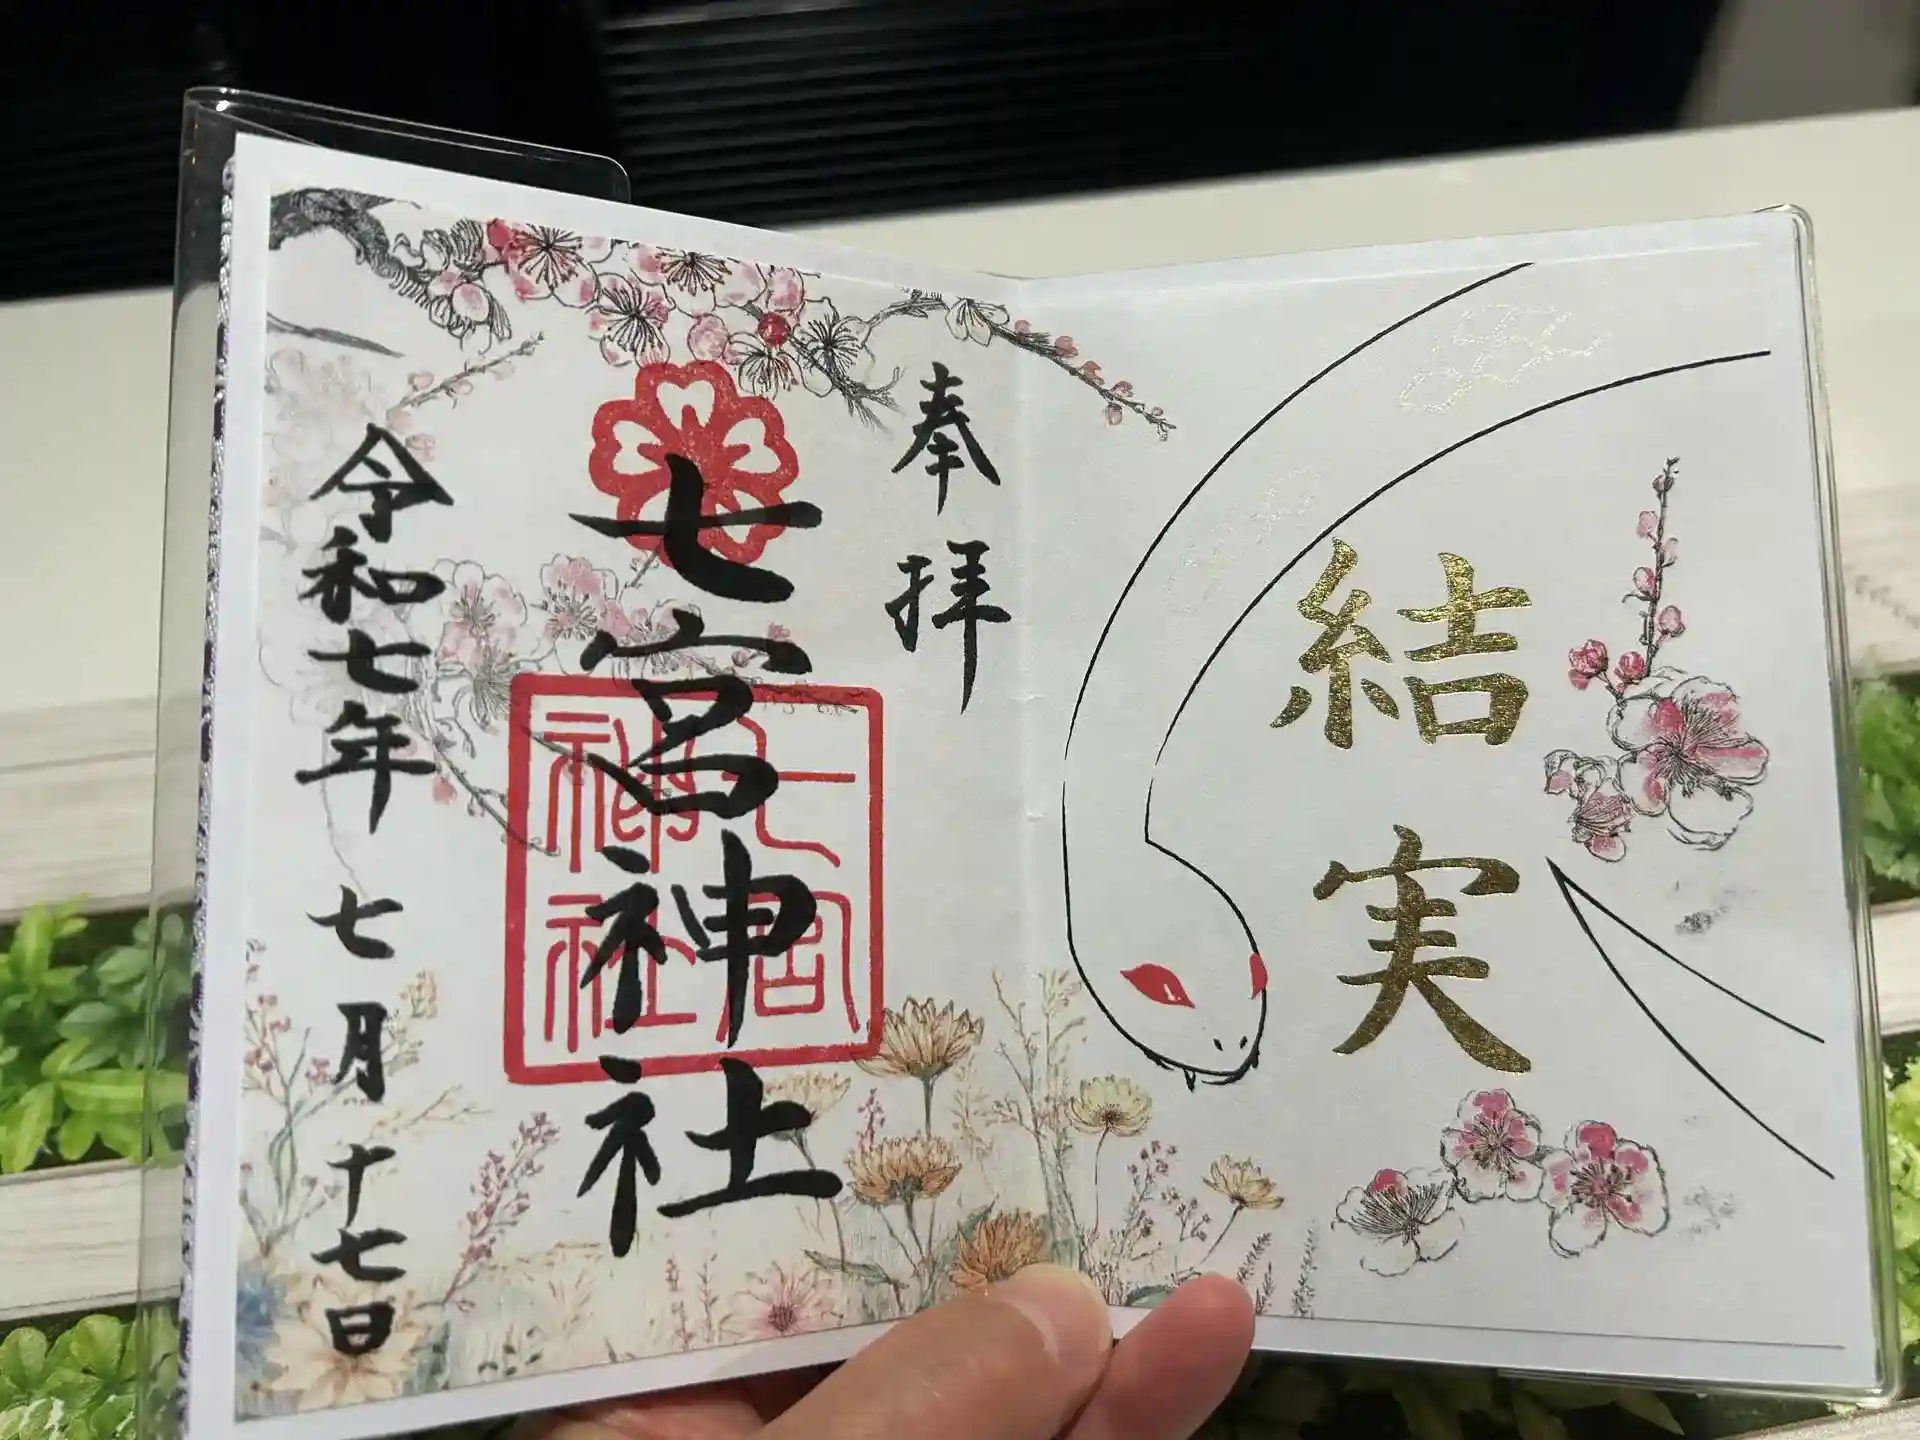 結実
奉拝
七宮神社
七宮
神社
令和七年七月十七日